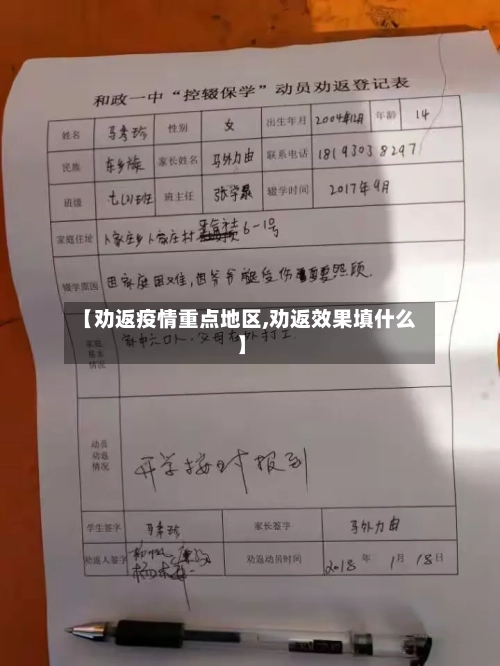 和政一中“控辍保学”动员劝返登记表
姓名 马秀珍 性别 女 出生年月 2004年12月 年龄 14
民族 东乡族 家长姓名 马外力由 联系电话 18193038297
班级 七(2)班 班主任 辍学时间 2017年9月
家庭住址 卜家庄乡卜家庄村 6-1号
辍学原因 因家庭困难,因爷爷腿受伤需要照顾.
【劝返疫情重点地区,劝返效果填什么
】
家庭基本情况 家中六口人.父母在外打工.
动员劝返情况 开学按时报到
学生签字 马秀珍 家长签字 马外力由
劝返人签字 劝返动员时间 2018年1月18日